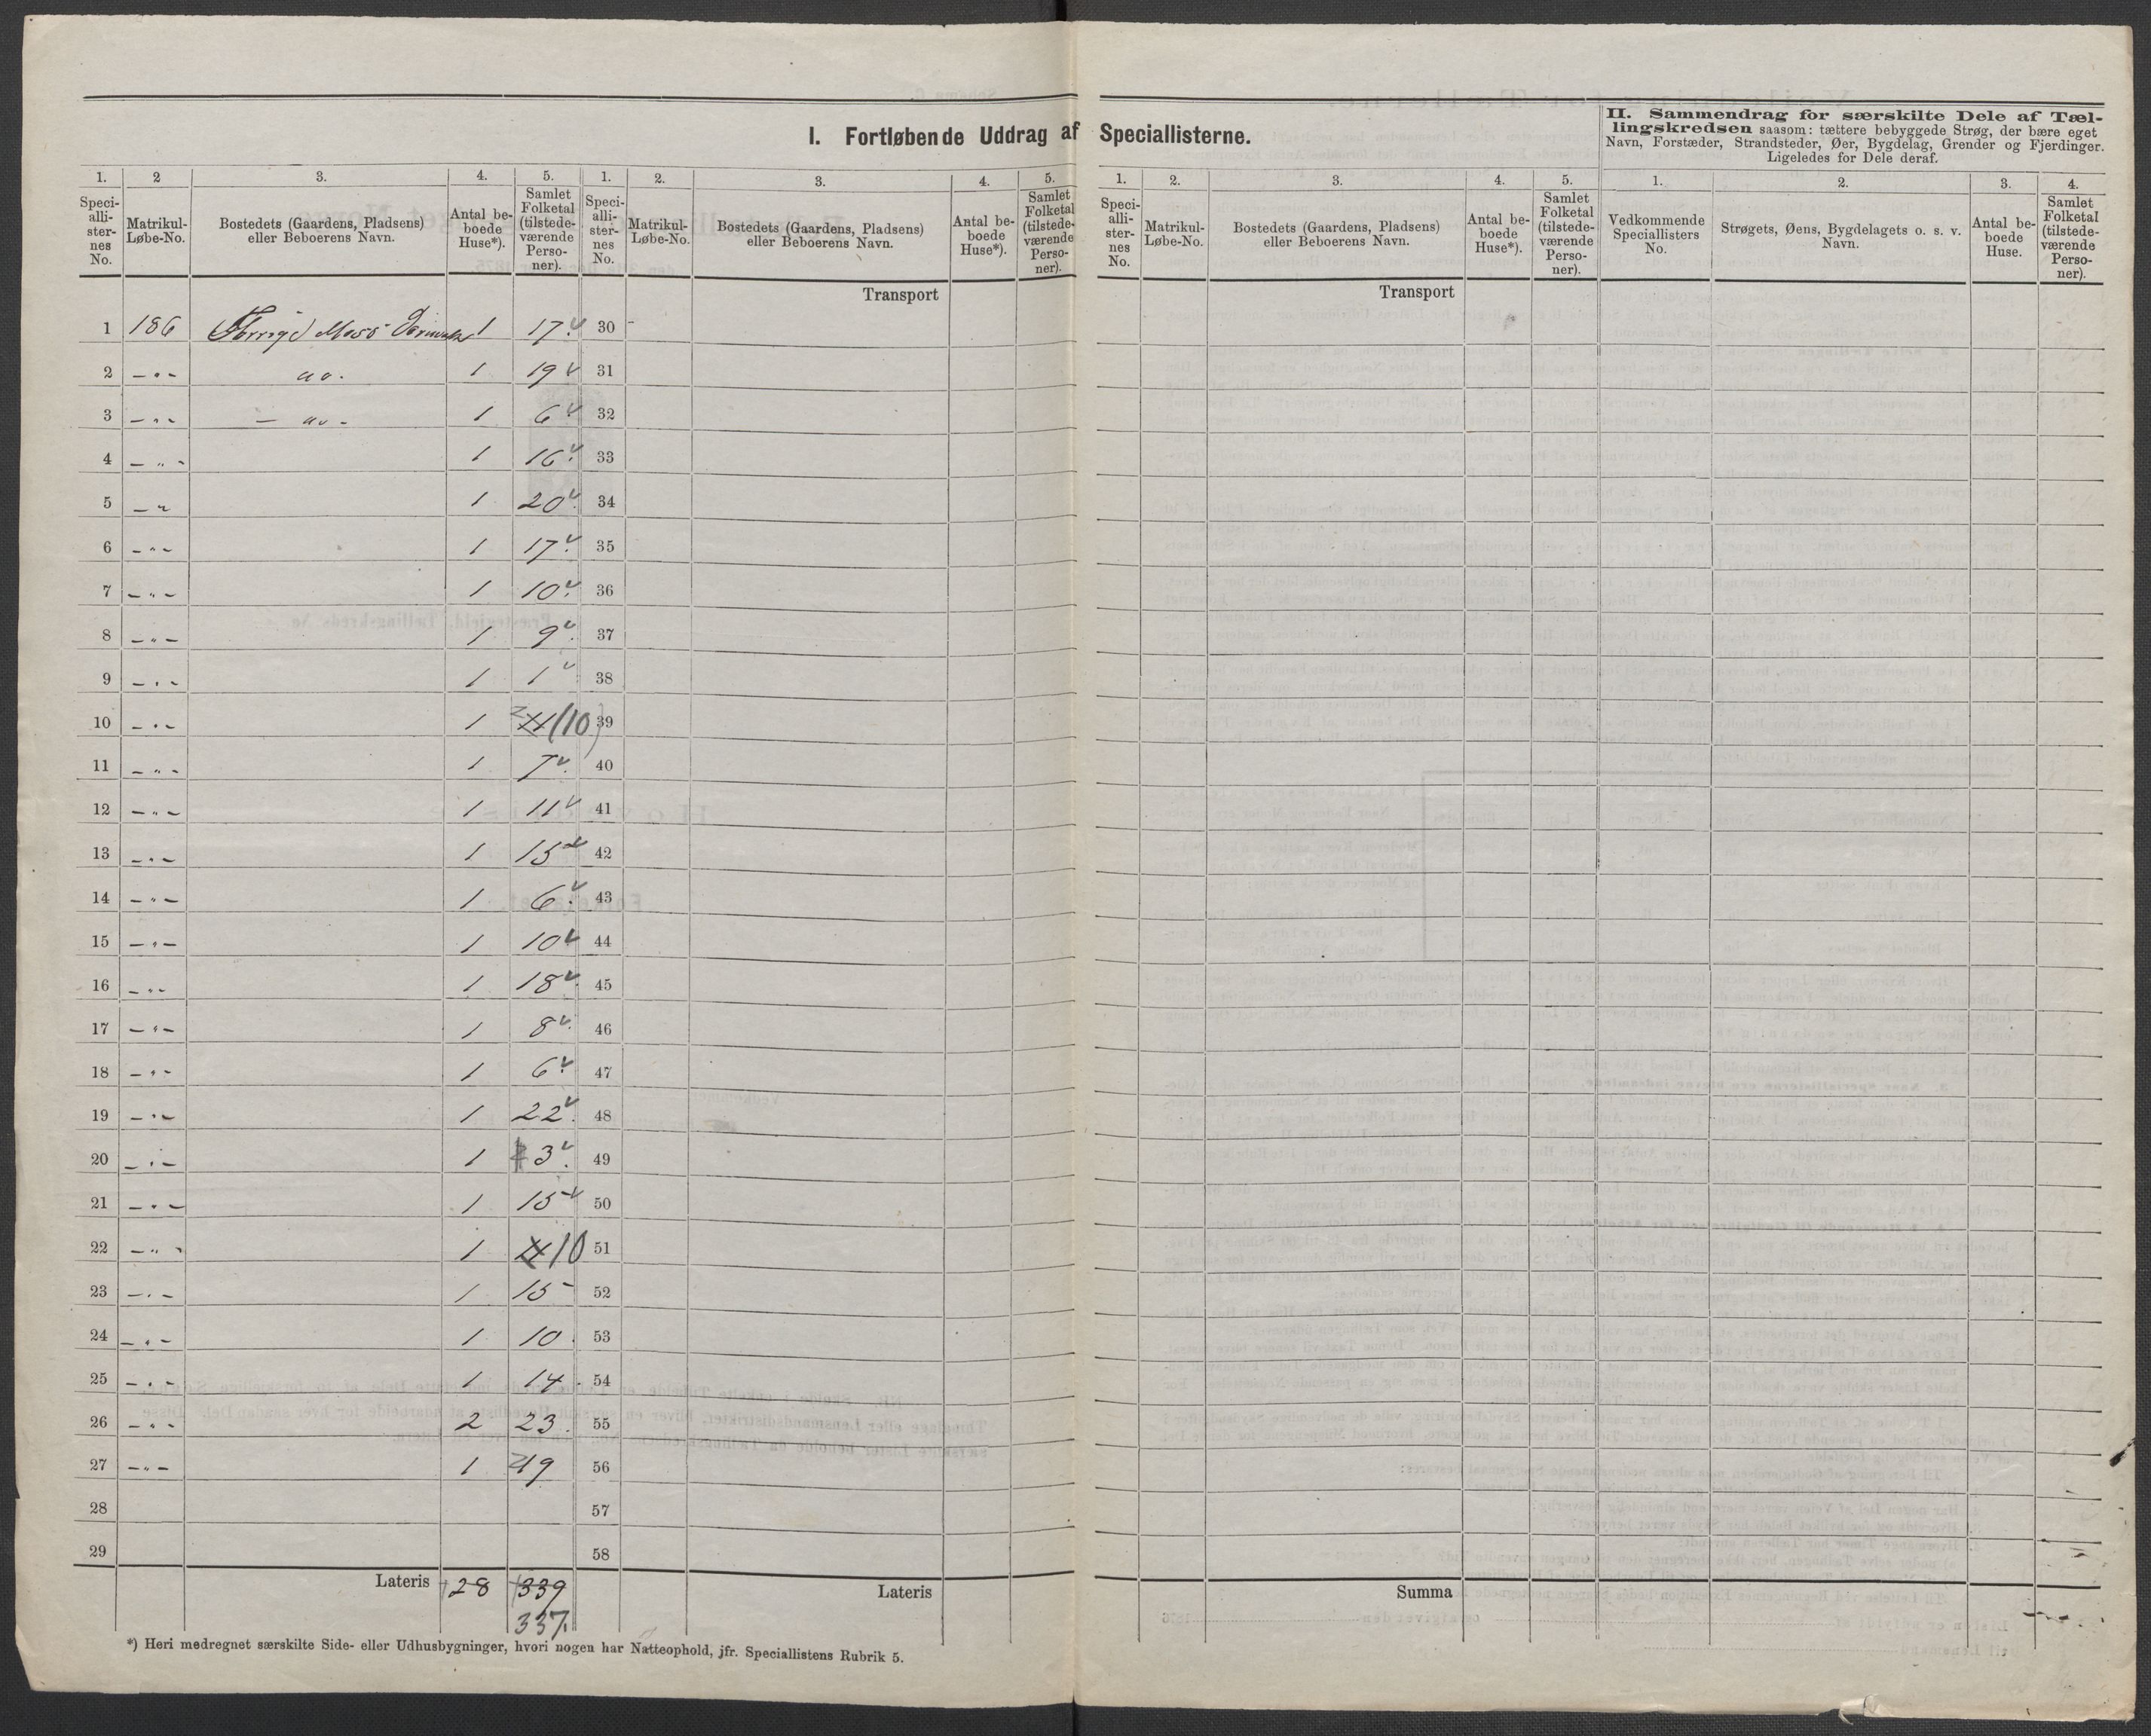 I. Fortløbende Uddrag af Speciallisterne.
II. Sammendrag for særskilte Dele af Tæl-
lingskredsen saasom: tættere bebyggede Strøg, der bære eget
Navn, Forstæder, Strandsteder, Øer, Bygdelag, Grender og Fjerdinger.
Ligeledes for Dele deraf.
1. 2 3. 4. 5. 1. 2. 3. 4. 5. 1. 2. 3. 4. 5. 1. 2. 3. 4.
Speci-
alli-
ster-
nes
No.
Matrikul-
Løbe-No.
Bostedets (Gaardens, Pladsens)
eller Beboerens Navn.
Antal be-
boede
Huse*).
Samlet
Folketal
(tilstede-
værende
Perso-
ner).
Speci-
alli-
ster-
nes
No.
Matrikul-
Løbe-No.
Bostedets (Gaardens, Pladsens)
eller Beboerens Navn.
Antal be-
boede
Huse*).
Samlet
Folketal
(tilstede-
værende
Perso-
ner).
Speci-
alli-
ster-
nes
No.
Matrikul-
Løbe-No.
Bostedets (Gaardens, Pladsens)
eller Beboerens Navn.
Antal be-
boede
Huse*).
Samlet
Folketal
(tilstede-
værende
Perso-
ner).
Vedkommende
Speciallisters
No.
Strøgets, Øens, Bygdelagets o. s. v.
Navn.
Antal be-
boede
Huse.
Samlet
Folketal
(tilstede-
værende
Perso-
ner).
Transport Transport
1 186 Moss 1 17 30
2 - " - 1 19 31
3 - " - 1 6 32
4 - " - 1 16 33
5 - " 1 20 34
6 - " - 1 17 35
7 - " - 1 10 36
8 - " - 1 9 37
9 - " - 1 1 38
10 - " - 1 (10) 39
11 - " - 1 7 40
12 - " - 1 11 41
13 - " - 1 15 42
14 - " - 1 6 43
15 - " - 1 10 44
16 - " - 1 18 45
17 - " - 1 8 46
18 - " - 1 6 47
19 - " - 1 22 48
20 - " - 1 3 49
21 - " - 1 15 50
22 - " - 1 10 51
23 - " - 1 15 52
24 - " - 1 10 53
25 - " - 1 14 54
26 - " - 2 23 55
27 - " - 1 19 56
28 57
29 58
Lateris 28 339 Lateris Summa
337.
*) Heri medregnet særskilte Side- eller Udhusbygninger, hvori nogen har Natteophold, jfr. Speciallistens Rubrik 5.